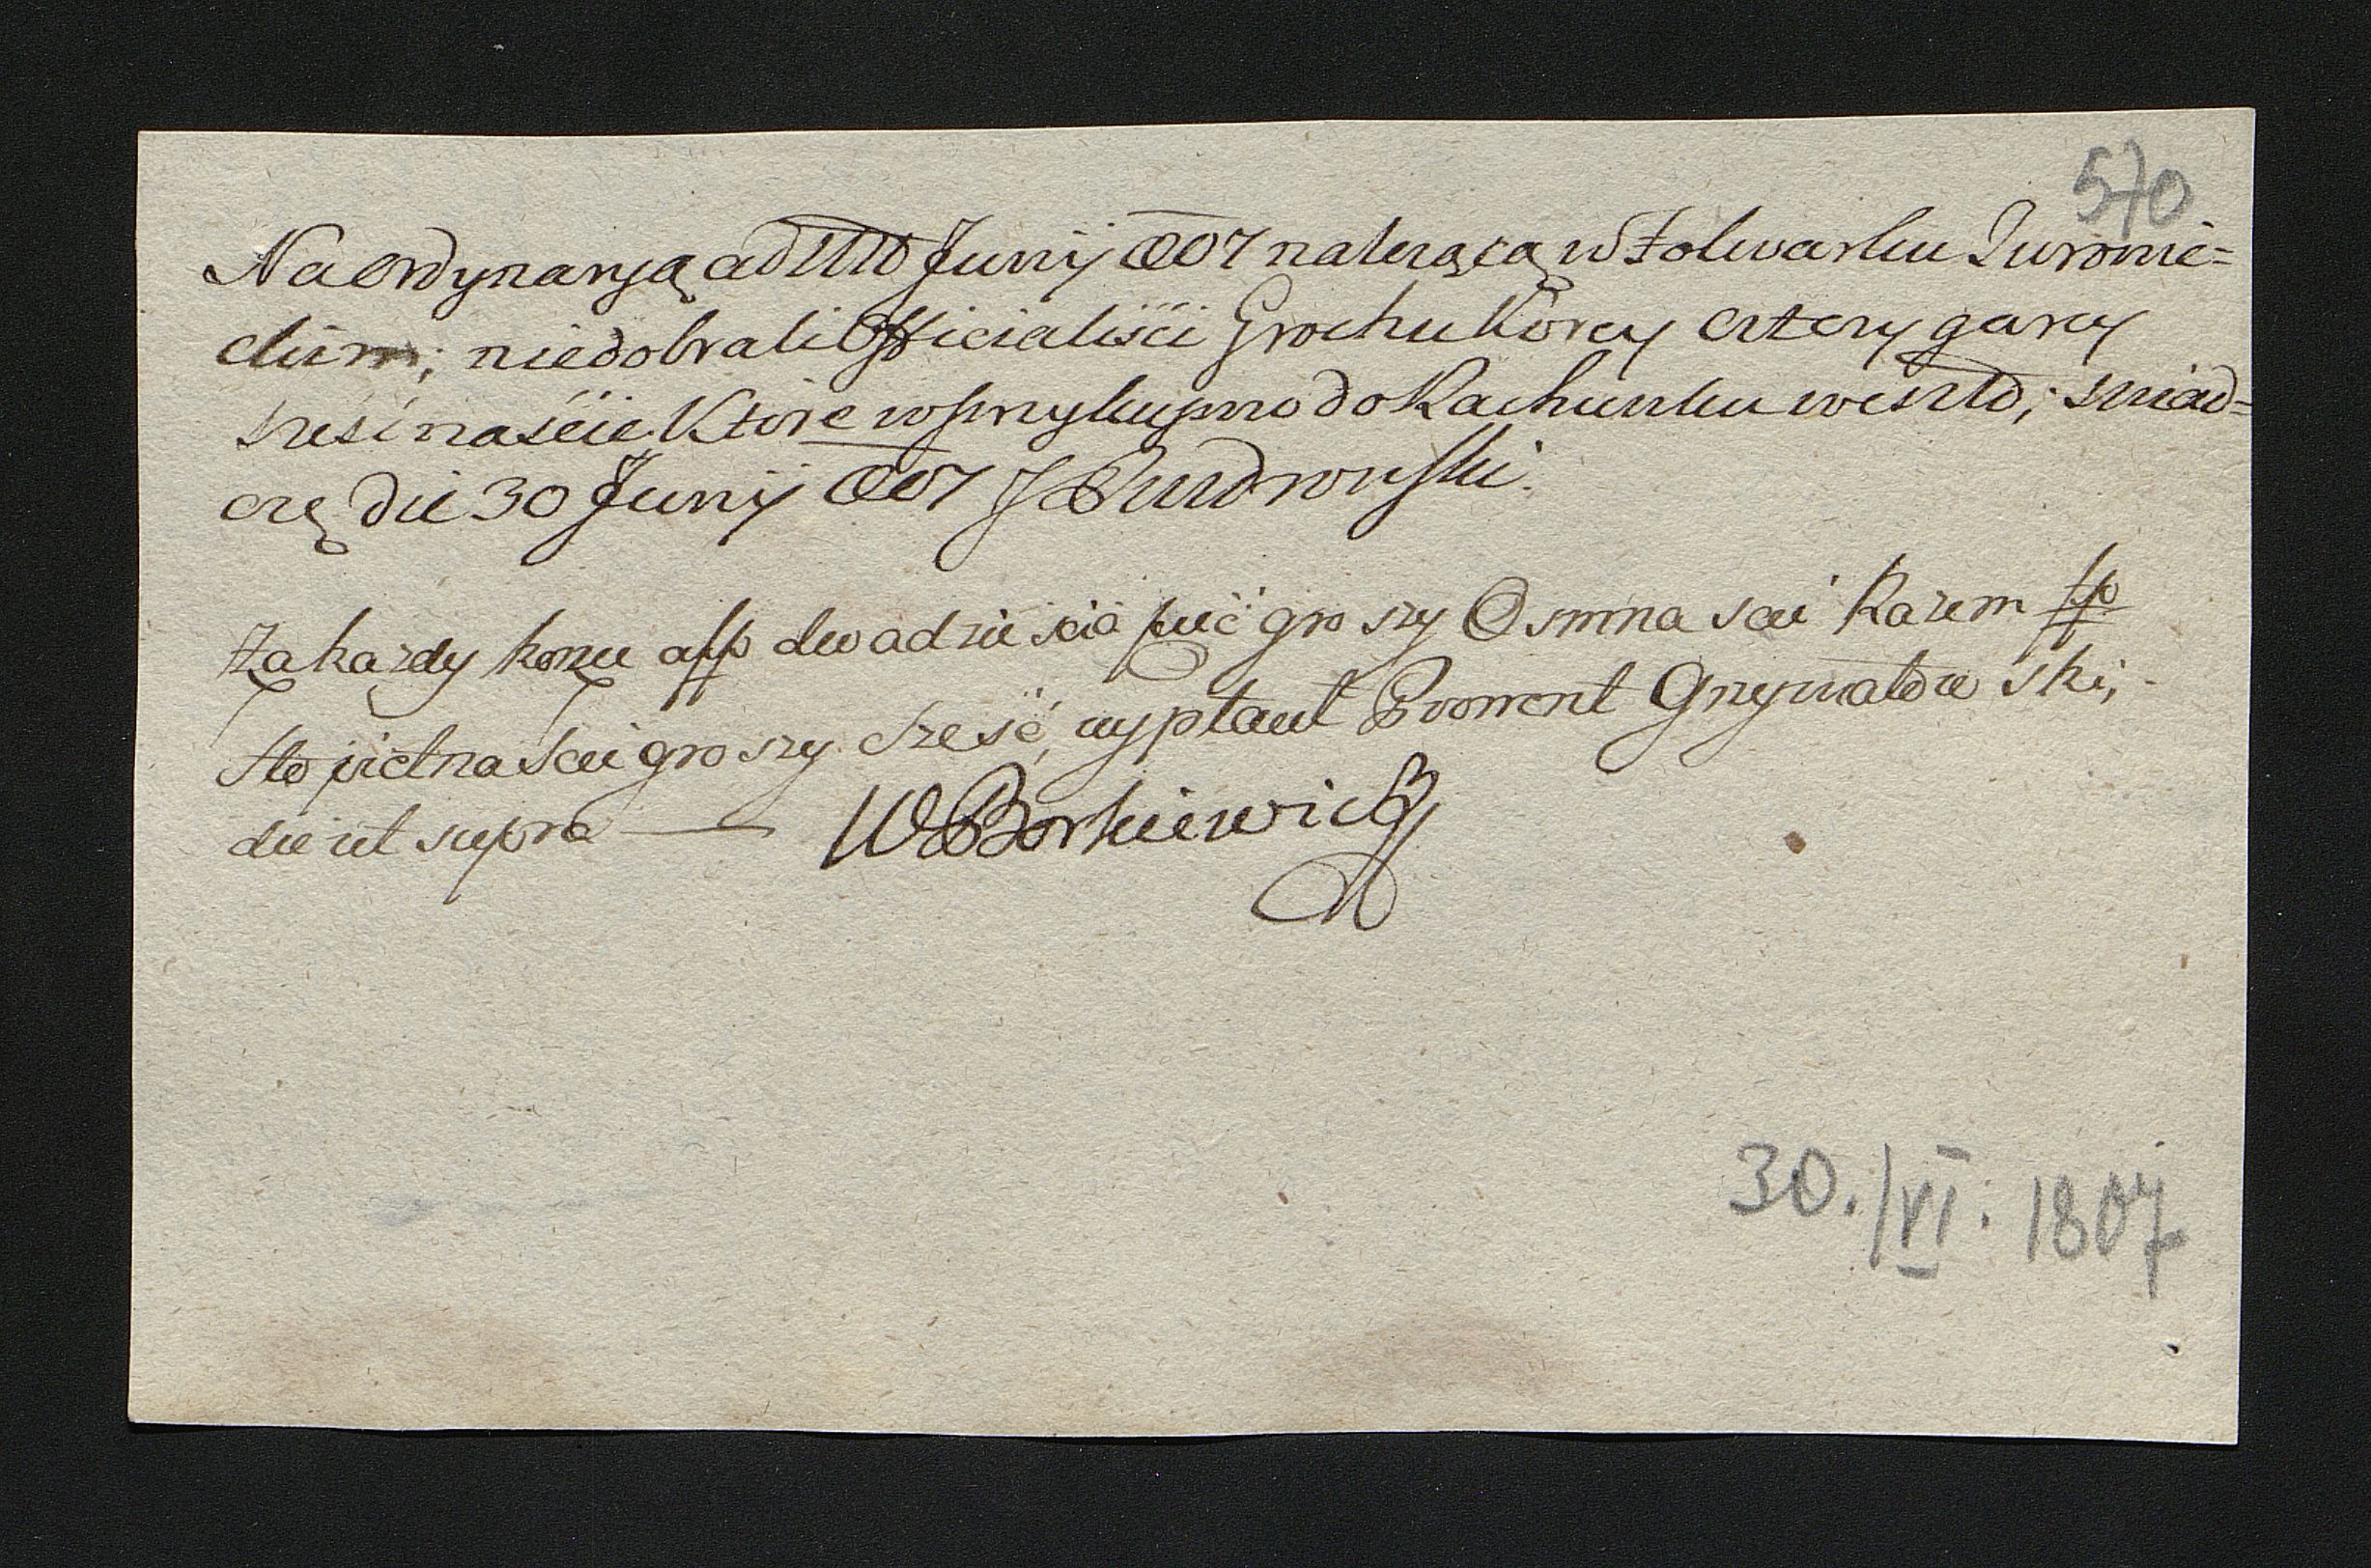 570
Na Ordynaryą ad ultd Junij 807 należącą w Folwarku Zwronie=
ckim; niedobrali Officialiści Grochu Korcy cztery garcy
sześćnaście Ktore w przykupno do Rachunku weszło; swiad=
czę die 30 Junij 807 J Burdrowski.
Za kazdy korzec a fp dwadziescia pięć groszy Osmnascie Razem fp
Sto pietnascie groszy szesć, wypłacił Prowent Grzymałowski,
die ut supra — W Borkiewicz
30./VI. 1807